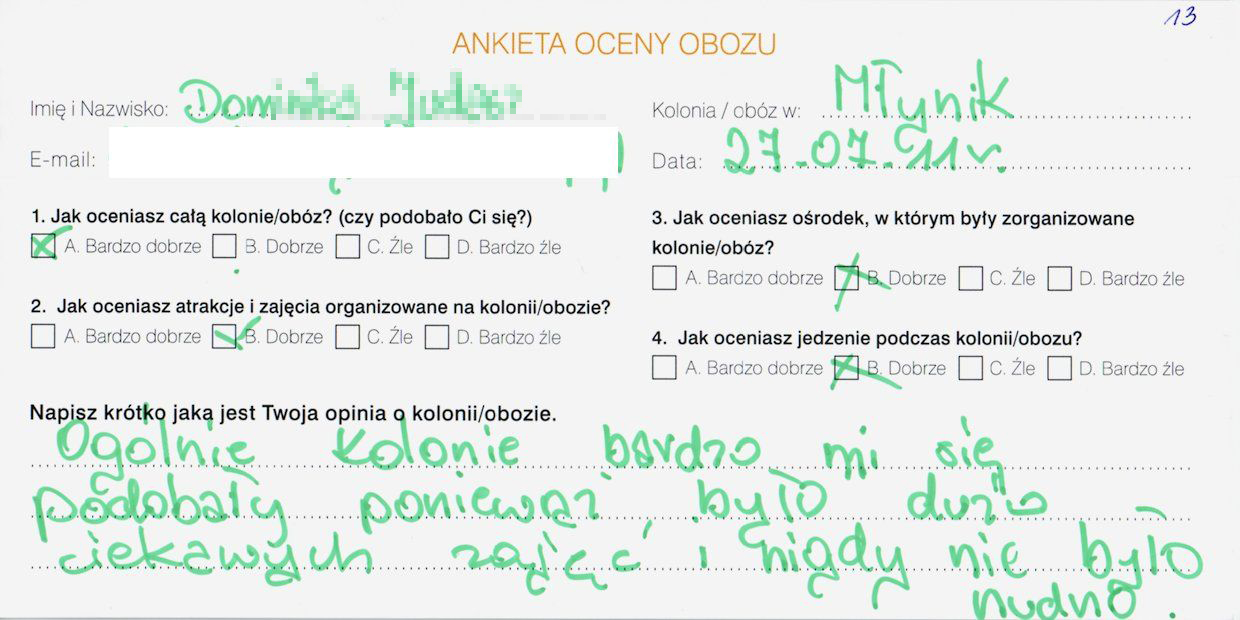 13
ANKIETA OCENY OBOZU
Imię i Nazwisko:
Kolonia / obóz w: Młynik
E-mail:
Data: 27.07.11r.
1. Jak oceniasz całą kolonie/obóz? (czy podobało Ci się?)
A. Bardzo dobrze B. Dobrze C. Źle D. Bardzo źle
2. Jak oceniasz atrakcje i zajęcia organizowane na kolonii/obozie?
A. Bardzo dobrze B. Dobrze C. Źle D. Bardzo źle
3. Jak oceniasz ośrodek, w którym były zorganizowane
kolonie/obóz?
A. Bardzo dobrze B. Dobrze C. Źle D. Bardzo źle
4. Jak oceniasz jedzenie podczas kolonii/obozu?
A. Bardzo dobrze B. Dobrze C. Źle D. Bardzo źle
Napisz krótko jaka jest Twoja opinia o kolonii/obozie.
Ogólnie kolonie bardzo mi się
podobały ponieważ było dużo
ciekawych zajęć i nigdy nie było
nudno.